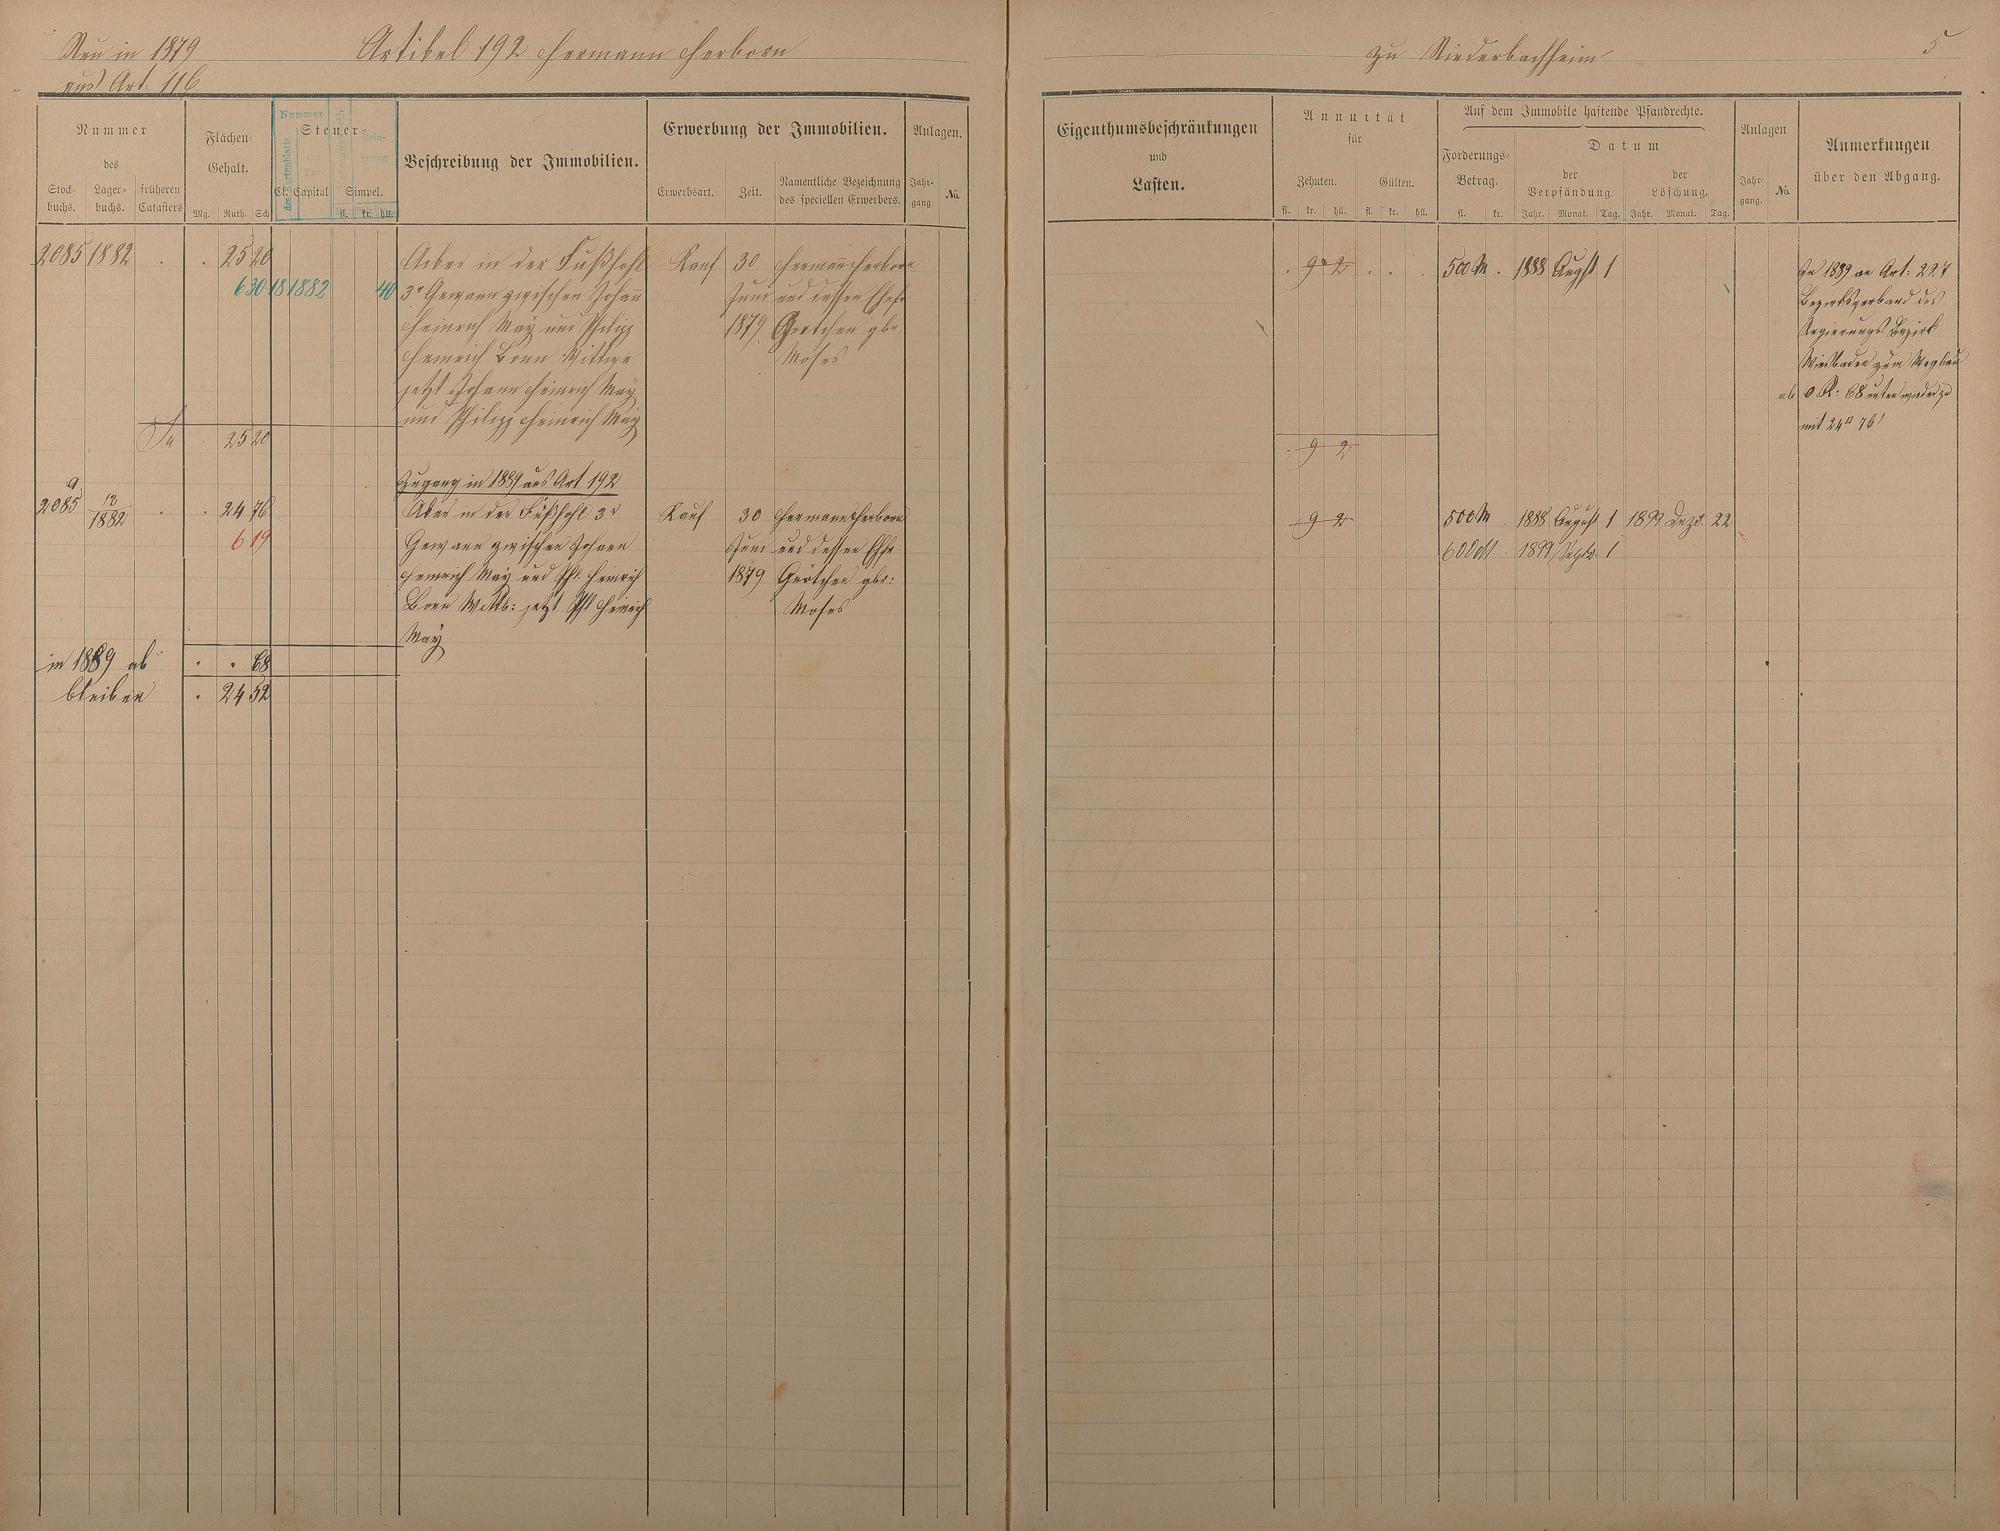 Neu in 1879
aus Art. 116
Artikel 192 Hermann Herborn
zu Niederbachheim
5
Nummer
des
Stock-
buchs.
Lager-
buchs.
früheren
Catasters
Flächen-
Gehalt.
Mg. Ruth. Sch
Nummer
des Kartenblatts
der
Par-
Rein-
ertrag
Steuer-
Cl. Capital
Simpel.
fl. kr. hll.
Beschreibung der Immobilien.
Erwerbung der Immobilien.
Erwerbsart.
Zeit.
Namentliche Bezeichnung
des speciellen Erwerbers.
Anlagen.
Jahr-
gang.
No.
Eigenthumsbeschränkungen
und
Lasten.
Annuität
für
Zehnten. Gülten.
fl. kr. hll. fl. kr. hll.
Auf dem Immobile haftende Pfandrechte.
Forderungs-
Betrag.
fl. kr.
Datum
der
Verpfändung.
Jahr. Monat. Tag.
der
Löschung.
Jahr. Monat. Tag.
Anlagen
Jahr-
gang.
No.
Anmerkungen
über den Abgang.
2085 1882 . . 25 20
6 30 18 1882 40
Acker in der Fußhohl
3r Gewann zwischen Johann
Heinrich May und Philipp
Heinrich Born Wittwe
jetzt Johann Heinrich May
und Philipp Heinrich May
Kauf
30
Juni
1879
Hermann Herborn
und dessen Ehefr.
Gretchen gbr.
Moses
Sa . 25 20
. 9 2 . . .
. 9 2
500 M . 1888 August 1
In 1889 an Art: 227
Bezirksverband des
Regierungs Bezirk
Wiesbaden zum Wegbau
ab 0 R: 68 unten wieder zu
mit 24 76
Zugang in 1889 aus Art 192
a
2085 18/1882 . . 24 76
6 19
Acker in der Fußhohl 3r
Gewann zwischen Johann
Heinrich May und Phl. Heinrich
Born Wttb: jetzt Phl Heinrich
May
Kauf
30
Juni
1879
Hermann Herborn
und dessen Ehfr.
Grötchen gbr:
Moses
9 2
500 M . 1888 August 1 1899 Dezb. 22
600 M . 1899 Septr. 1
in 1889 ab . . 68
bleiben . 24 52